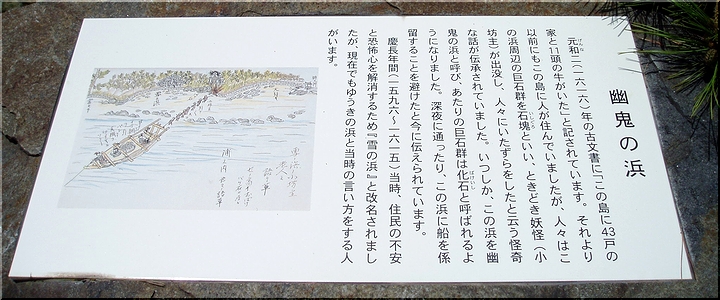 幽鬼の浜
元和二(一六一六)年の古文書に「この島に43戸の
家と11頭の牛がいた」と記されています。それより
以前にもこの島に人が住んでいましたが、人々はこ
の浜周辺の巨石群を石塊といい、ときどき妖怪(小
坊主)が出没し、人々にいたずらをしたと云う怪奇
な話が伝承されていました。いつしか、この浜を幽
鬼の浜と呼び、あたりの巨石群は化石と呼ばれるよ
うになりました。深夜に通ったり、この浜に船を係
留することを避けたと今に伝えられています。
慶長年間(一五九六〜一六一五)当時、住民の不安
と恐怖心を解消するため『雪の浜』と改名されまし
たが、現在でもゆうきの浜と当時の言い方をする人
がいます。